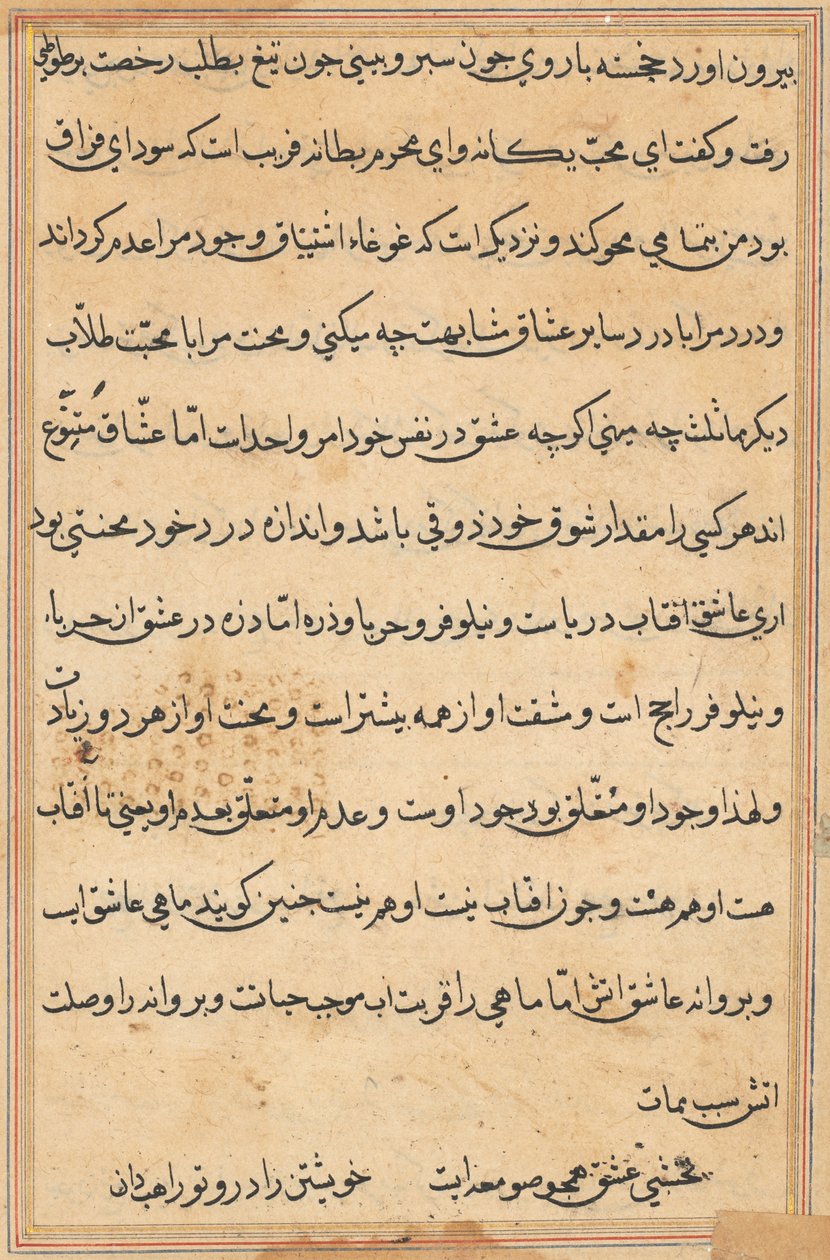 بیرون اورد خجسته باروي جون سبر و بیني جون تیغ بطلب رخصت بر طوطي
رفت و کفت اي محبّ یکانه واي محرم بطانه قریب است که سوداي فراق
بود من بتمامي محو کند و نزدیک است که غوغاء اشتیاق وجود مرا عدم کرداند
و درد مرا با درد سایر عشاق مشابهت چه میکني و محنت مرا با محبّت طلاّب
دیکر مماثلث چه میني اکر چه عشق در نفس خود امر واحد است امّا عشّاق متنوّع
اند هر کسي را مقدار شوق خود ذوقي باشد و اندازه درد خود محنتي بود
اري عاشق افتاب دریاست و نیلوفر و حربا و ذره امّا ذره در عشق از حرباء
و نیلوفر راجح است و مشقت او از همه بیشتر است و محنت او از هر دو زیادت
و لهذا وجود او متعّلق بوجود اوست و عدم او متعلّق بعدم او یعني تا افتاب
هست او هم هست و جون افتاب نیست او هم نیست جنین کویند ماهي عاشق ابست
و بروانه عاشق اتش امّا ماهي را قربت اب موجب حیاتت و بروانه را وصلت
اتش سبب ممات
نخشبي عشق همجو صومعه ایت خویشتن را درو تو راهب دان